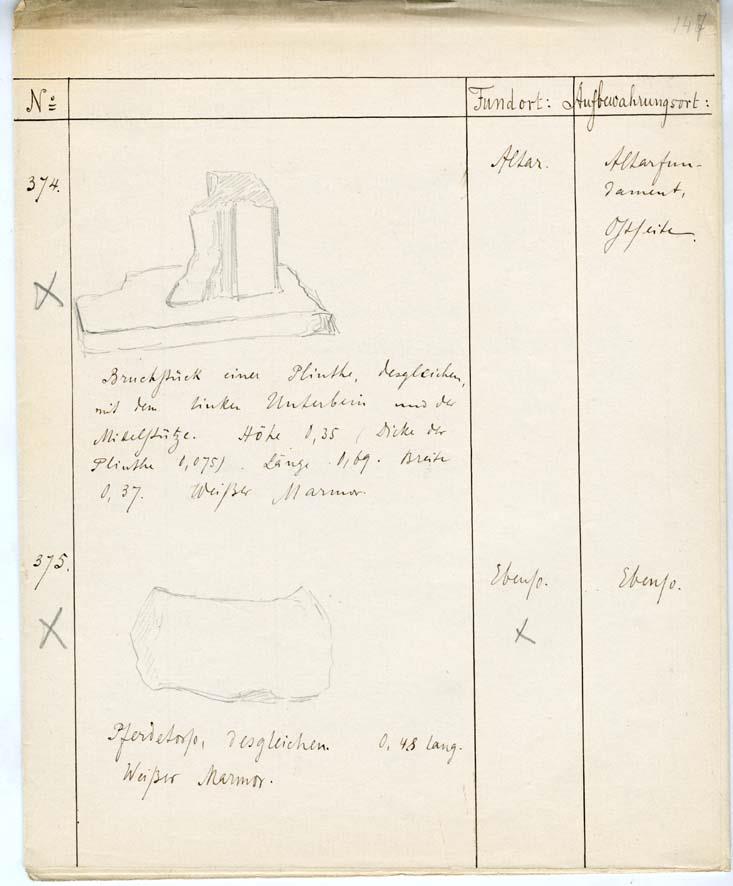 147
No: Fundort: Aufbewahrungsort:
374. Altar. Altarfun-
dament,
Ostseite.
Bruchstück einer Plinthe, desgleichen,
mit dem linken Unterbein und der
Mittelstütze. Höhe 0,35 (Dicke der
Plinthe 0,075). Länge 0,69. Breite
0,37. Weißer Marmor.
375. Ebenso. Ebenso.
Pferdetorso, desgleichen. 0,48 lang.
Weißer Marmor.